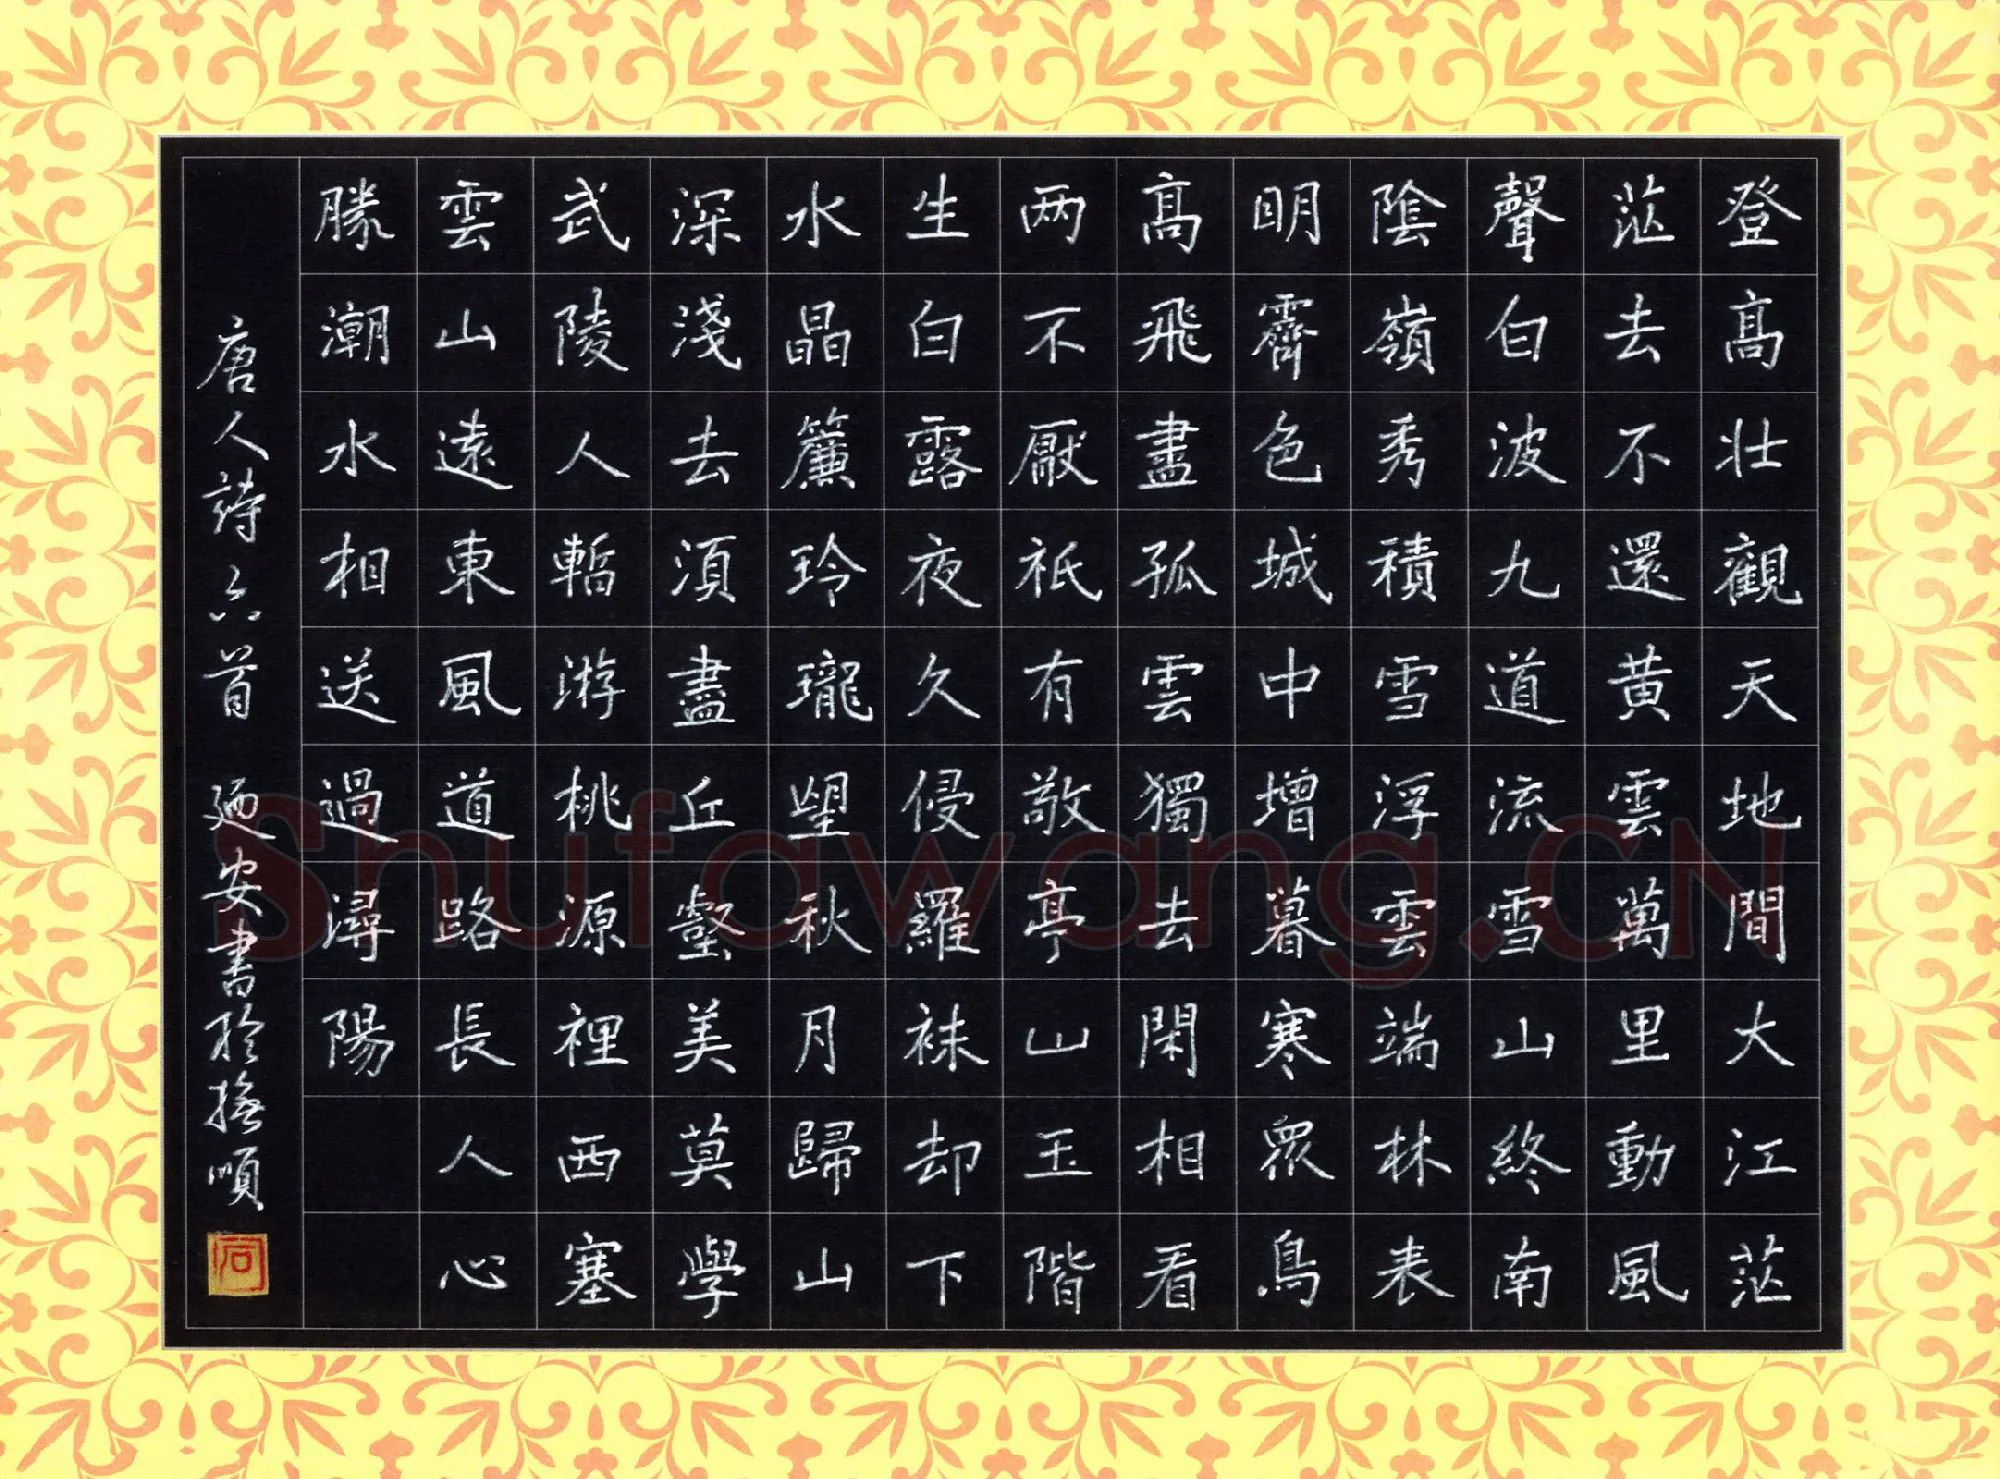 登高壮觀天地間大江茫
茫去不還黄雲萬里動風
聲白波九道流雪山終南
陰嶺秀積雪浮雲端林表
明霽色城中增暮寒眾鳥
高飛盡孤雲獨去閑相看
两不厭祇有敬亭山玉階
生白露夜久侵羅袜却下
水晶簾玲瓏望秋月歸山
深淺去須盡丘壑美莫學
武陵人暫游桃源裡西塞
雲山遠東風道路長人心
勝潮水相送過潯陽
唐人詩六首 廼安書於撫順
Shufawang.CN